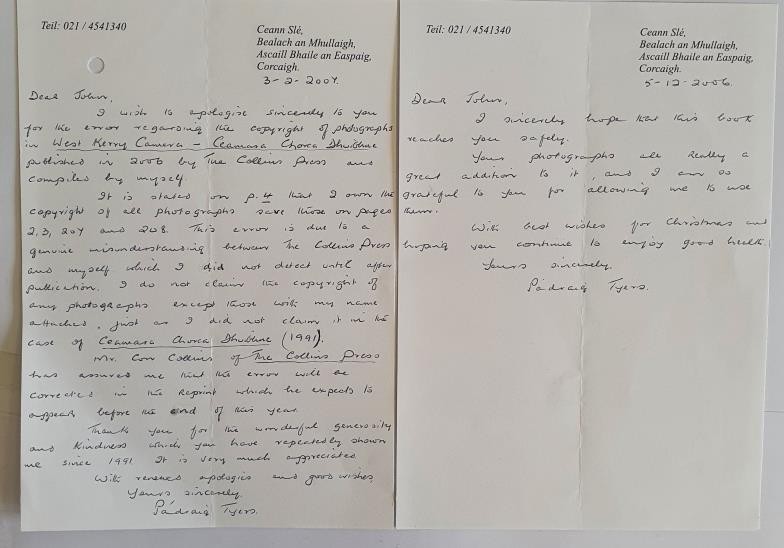 Teil: 021 / 4541340
Ceann Slé,
Bealach an Mhullaigh,
Ascaill Bhaile an Easpaig,
Corcaigh.
3-2-2007.
Dear John,
I wish to apologise sincerely to you
for the error regarding the copyright of photographs
in West Kerry Camera – Ceamara Chorca Dhuibhne
published in 2006 by The Collins Press and
compiled by myself.
It is stated on p.4 that I own the
copyright of all photographs save those on pages
2, 3, 207 and 208. This error is due to a
genuine misunderstanding between The Collins Press
and myself which I did not detect until after
publication. I do not claim the copyright of
any photographs except those with my name
attached, just as I did not claim it in the
case of Ceamara Chorca Dhuibhne (1991).
Mr. Con Collins of The Collins Press
has assured me that the error will be
corrected in the Reprint which he expects to
appear before the end of this year.
Thank you for the wonderful generosity
and kindness which you have repeatedly shown
me since 1991. It is very much appreciated.
With renewed apologies and good wishes,
Yours sincerely,
Pádraig Tyers.
Teil: 021 / 4541340
Ceann Slé,
Bealach an Mhullaigh,
Ascaill Bhaile an Easpaig,
Corcaigh.
5-12-2006.
Dear John,
I sincerely hope that this book
reaches you safely.
Your photographs are really a
great addition to it, and I am so
grateful to you for allowing me to use
them.
With best wishes for Christmas and
hoping you continue to enjoy good health.
Yours sincerely,
Pádraig Tyers.